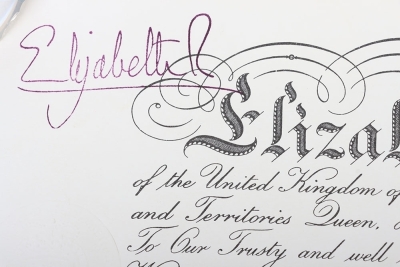 Elizabeth R
Eliza
of the United Kingdom of
and Territories Queen,
To Our Trusty and well